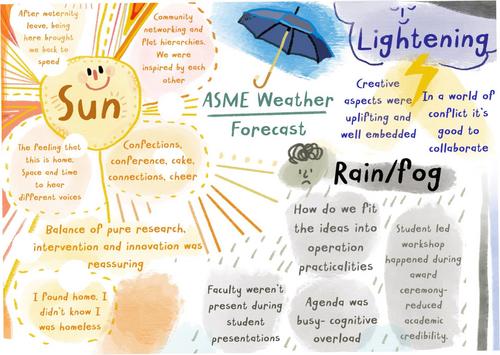 After maternity
leave, being
here brought
me back to
speed
Community
networking and
flat hierarchies.
We were
inspired by each
other
Sun
The feeling that
this is home.
Space and time
to hear
different voices
Confections,
conference, cake,
connections, cheer
Balance of pure research,
intervention and innovation was
reassuring
I found home, I
didn't know I
was homeless
ASME Weather
Forecast
Lightening
Creative
aspects were
uplifting and
well embedded
In a world of
conflict it's
good to
collaborate
Rain/fog
How do we fit
the ideas into
operation
practicalities
Student led
workshop
happened during
award
ceremony-
reduced
academic
credibility.
Faculty weren't
present during
student
presentations
Agenda was
busy- cognitive
overload